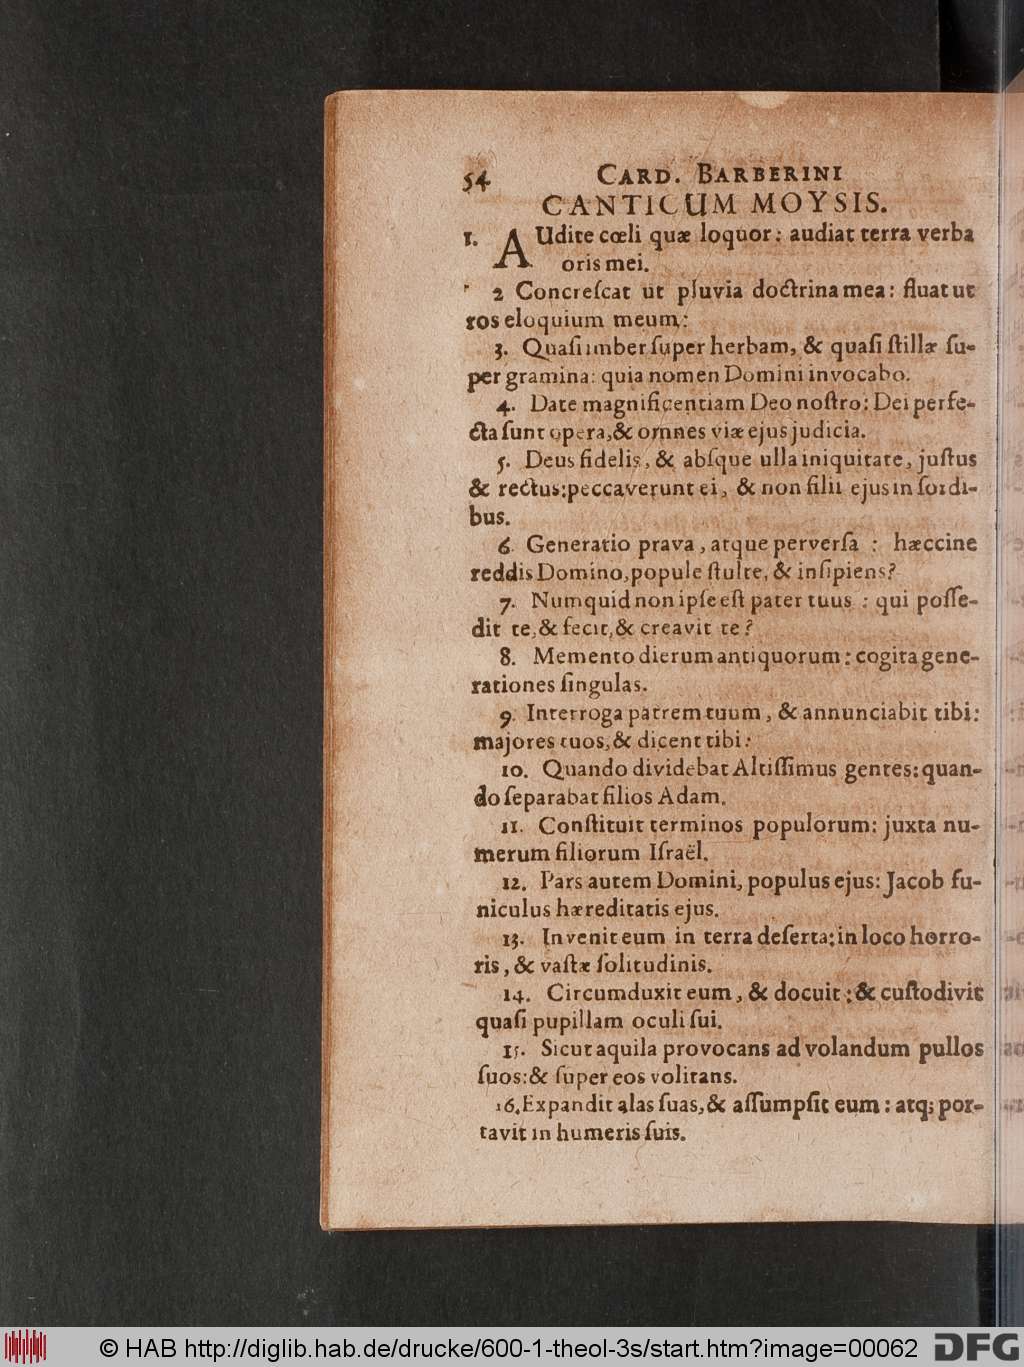 54 CARD. BARBERINI
CANTICUM MOYSIS.
1. AUdite cœli quæ loquor: audiat terra verba
oris mei.
2 Concreſcat ut pluvia doctrina mea: fluat ut
ros eloquium meum:
3. Quaſi imber ſuper herbam, & quaſi ſtillæ ſu-
per gramina: quia nomen Domini invocabo.
4. Date magnificentiam Deo noſtro: Dei perfe-
cta ſunt opera, & omnes viæ ejus judicia.
5. Deus fidelis, & abſque ulla iniquitate, juſtus
& rectus: peccaverunt ei, & non filii ejus in ſordi-
bus.
6. Generatio prava, atque perverſa : hæccine
reddis Domino, popule ſtulte, & inſipiens?
7. Numquid non ipſe eſt pater tuus : qui poſſe-
dit te, & fecit, & creavit te?
8. Memento dierum antiquorum: cogita gene-
rationes ſingulas.
9. Interroga patrem tuum, & annunciabit tibi:
majores tuos, & dicent tibi:
10. Quando dividebat Altiſſimus gentes: quan-
do ſeparabat filios Adam.
11. Conſtituit terminos populorum: juxta nu-
merum filiorum Iſraël.
12. Pars autem Domini, populus ejus: Jacob fu-
niculus hæreditatis ejus.
13. Invenit eum in terra deſerta: in loco horro-
ris, & vaſtæ ſolitudinis.
14. Circumduxit eum, & docuit: & cuſtodivit
quaſi pupillam oculi ſui.
15. Sicut aquila provocans ad volandum pullos
ſuos: & ſuper eos volitans.
16. Expandit alas ſuas, & aſſumpſit eum: atq; por-
tavit in humeris ſuis.
© HAB http://diglib.hab.de/drucke/600-1-theol-3s/start.htm?image=00062 DFG